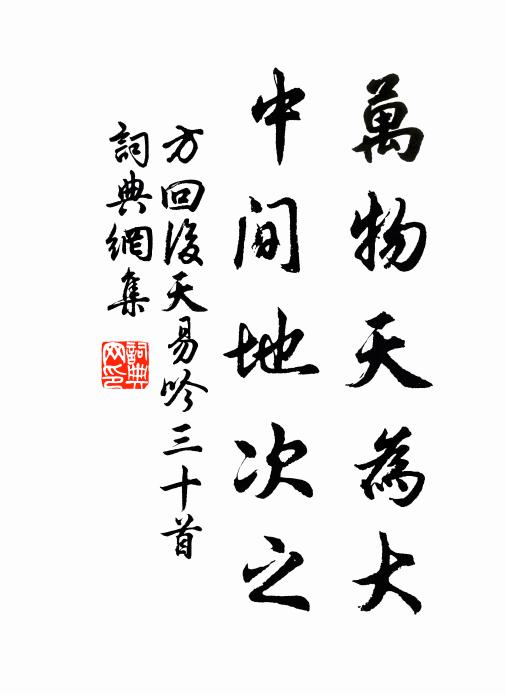 萬物天為大
中間地次之
方回後天易吟三十首
詞典網集
詞典網印